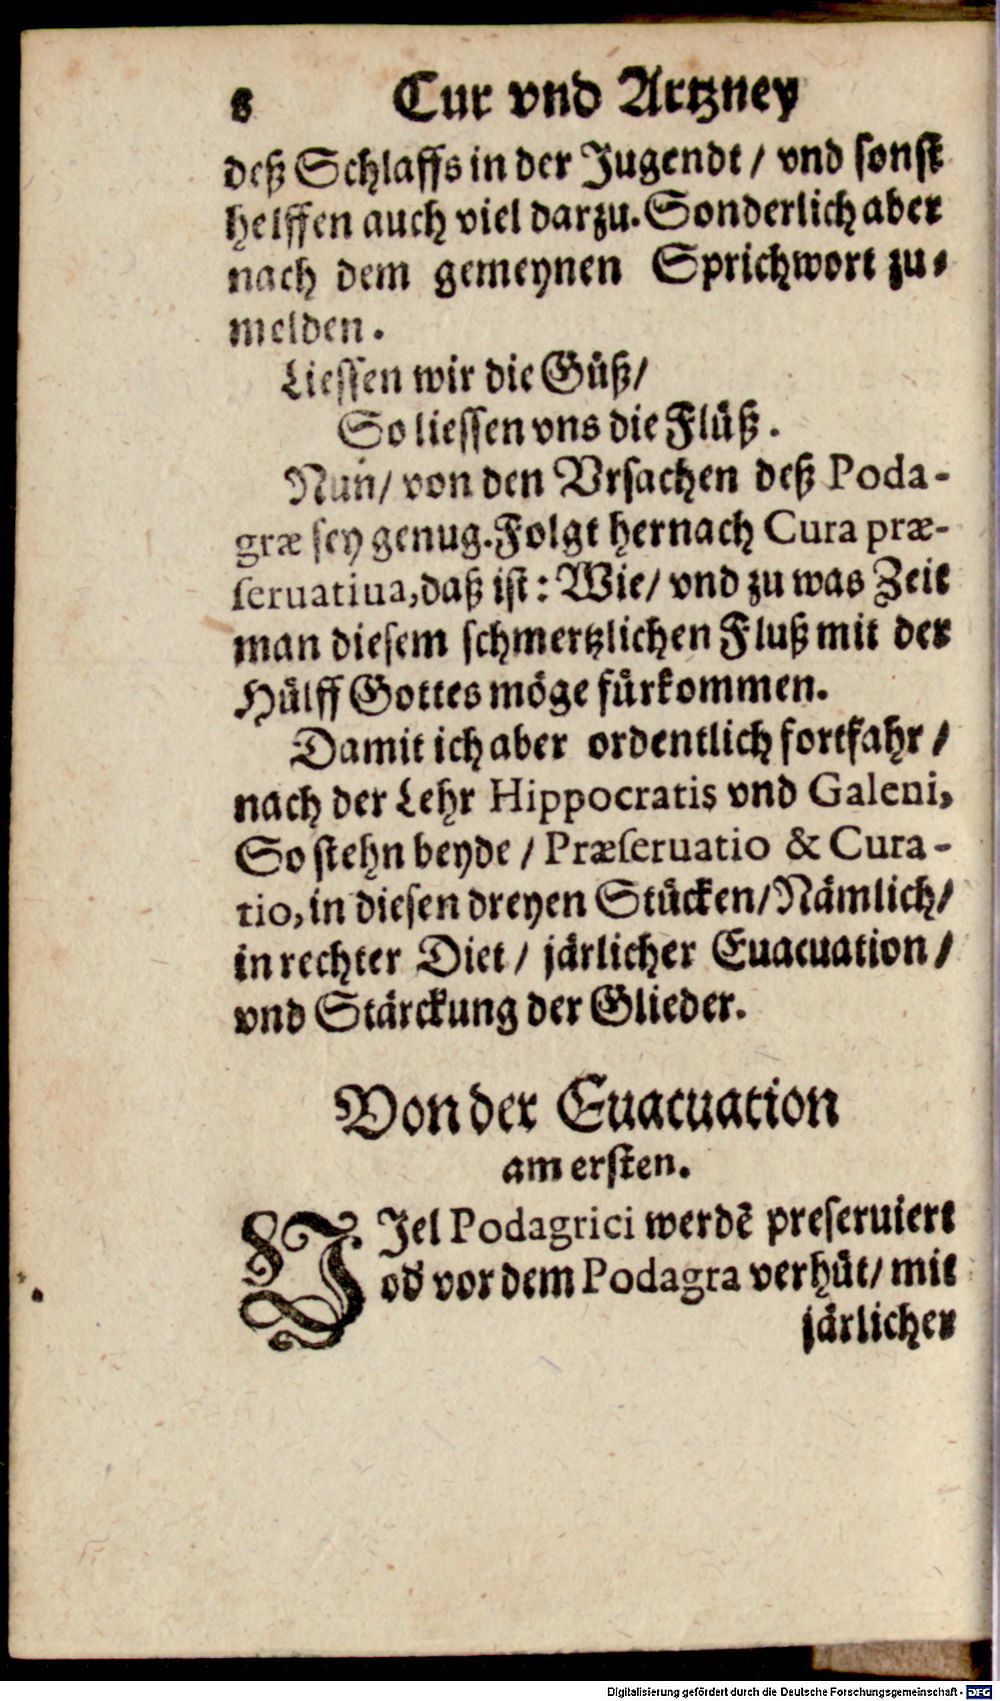 8 Cur vnd Artzney
deß Schlaffs in der Jugendt / vnd sonst
helffen auch viel darzu. Sonderlich aber
nach dem gemeynen Sprichwort zu⸗
melden.
Liessen wir die Güß/
So liessen vns die Flüß.
Nun/ von den Vrsachen deß Poda-
græ sey genug. Folgt hernach Cura præ-
seruatiua, daß ist: Wie/ vnd zu was Zeit
man diesem schmertzlichen Fluß mit der
Hülff Gottes möge fürkommen.
Damit ich aber ordentlich fortfahr /
nach der Lehr Hippocratis vnd Galeni,
So stehn beyde / Præseruatio & Cura-
tio, in diesen dreyen Stücken/ Nämlich/
in rechter Diet / järlicher Euacuation /
vnd Stärckung der Glieder.
Von der Euacuation
am ersten.
VJel Podagrici werdē preseruiert
oď vor dem Podagra verhüt/ mit
järlicher
Digitalisierung gefördert durch die Deutsche Forschungsgemeinschaft - DFG